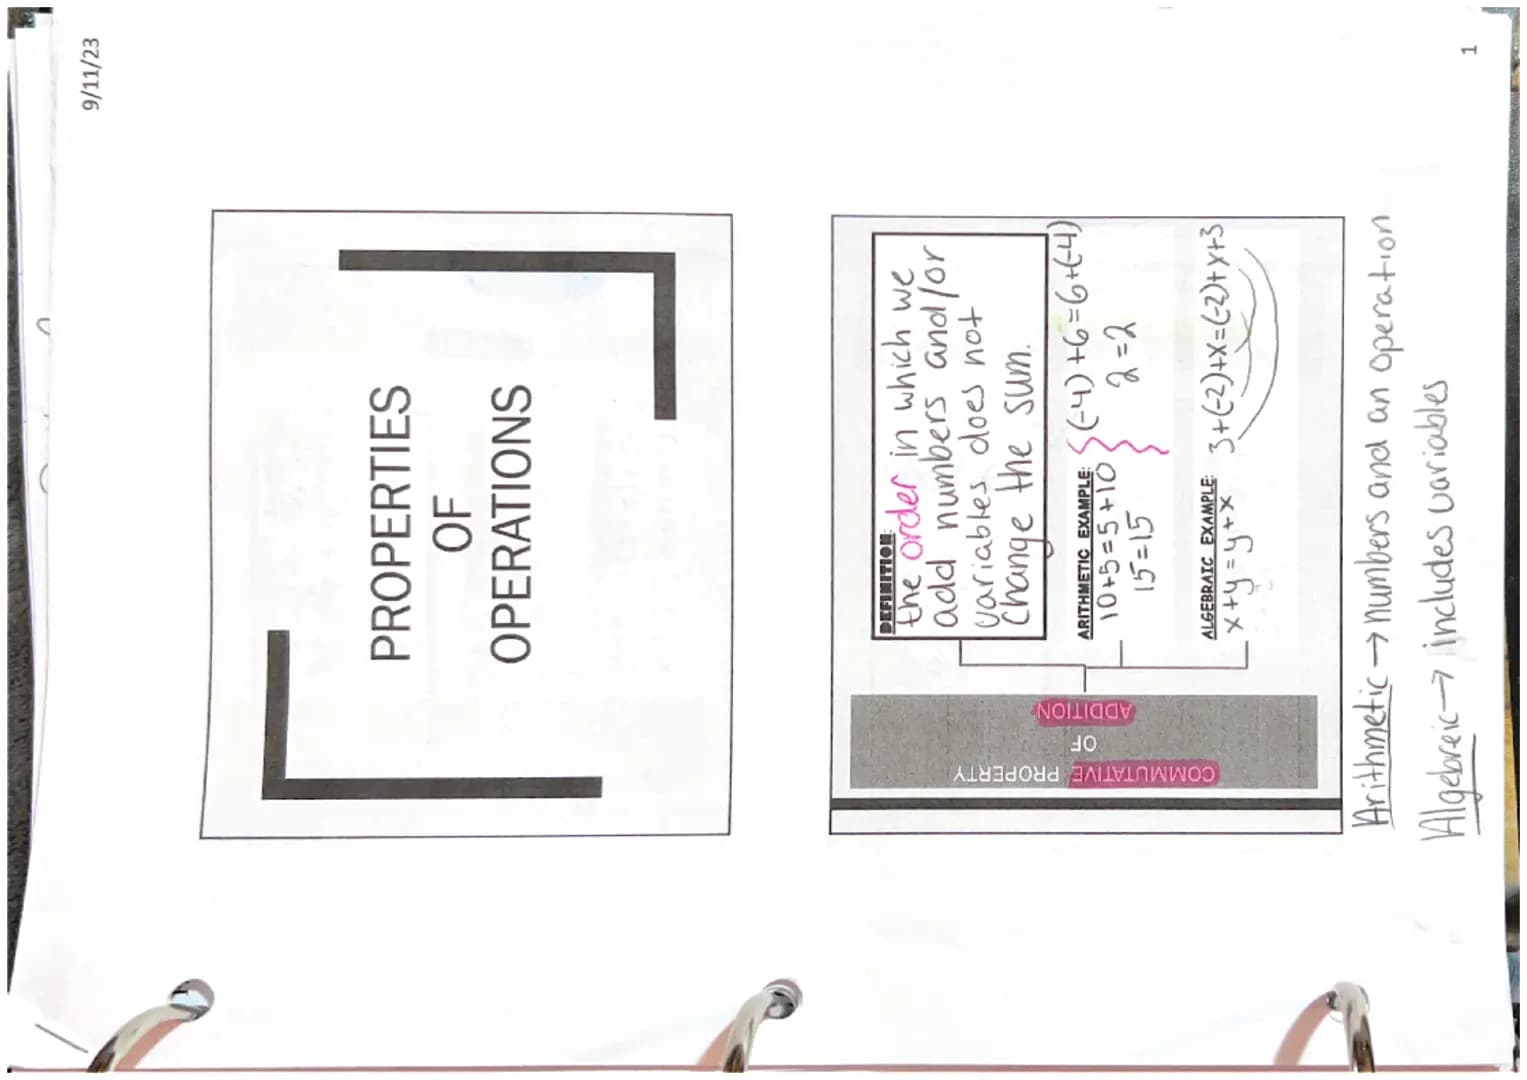 9/11/23
PROPERTIES
OF
OPERATIONS
COMMUTATIVE PROPERTY
OF
ADDITION
DEFINITION:
the order in which we
add numbers and/or
variables does not
change the sum.
ARITHMETIC EXAMPLE:
10+5=5+10
15=15
(-4)+6=6+(-4)
2=2
ALGEBRAIC EXAMPLE:
x+y=y+x
3+(-2)+x=(-2)+x+3
Arithmetic → numbers and an operation
Algebreic → includes variables
1